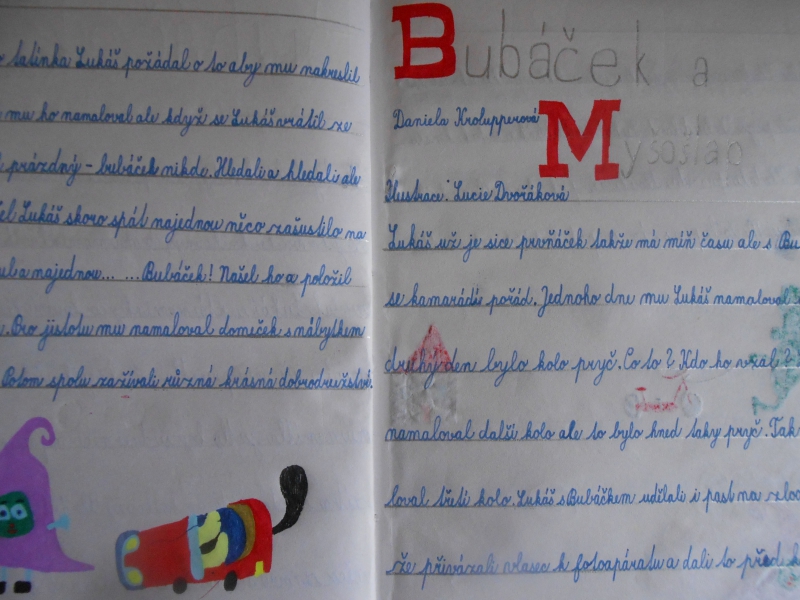 tatínka Lukáš požádal o to aby mu nakreslil
mu ho namaloval ale když se Lukáš vrátil ze
prázdný - bubáček nikde. Hledali a hledali ale
Lukáš skoro spát najednou něco zašustilo na
a najednou... ...Bubáček! Našel ho a položil
. Pro jistotu mu namaloval domeček s nábytkem
Potom spolu zažívali různá krásná dobrodružství.
Bubáček a
Daniela Krolupperová
Mysoslao
Ilustrace: Lucie Dvořáková
Lukáš už je sice prvňáček takže má míň času ale s Bu
se kamarádí pořád. Jednoho dne mu Lukáš namaloval
druhý den bylo kolo pryč. Co to? Kdo ho vzal?
namaloval další kolo ale to bylo hned taky pryč. Tak
loval třetí kolo. Lukáš s Bubáčkem udělali i past na zlod
že přivázali vlasec k fotoaparátu a dali to před